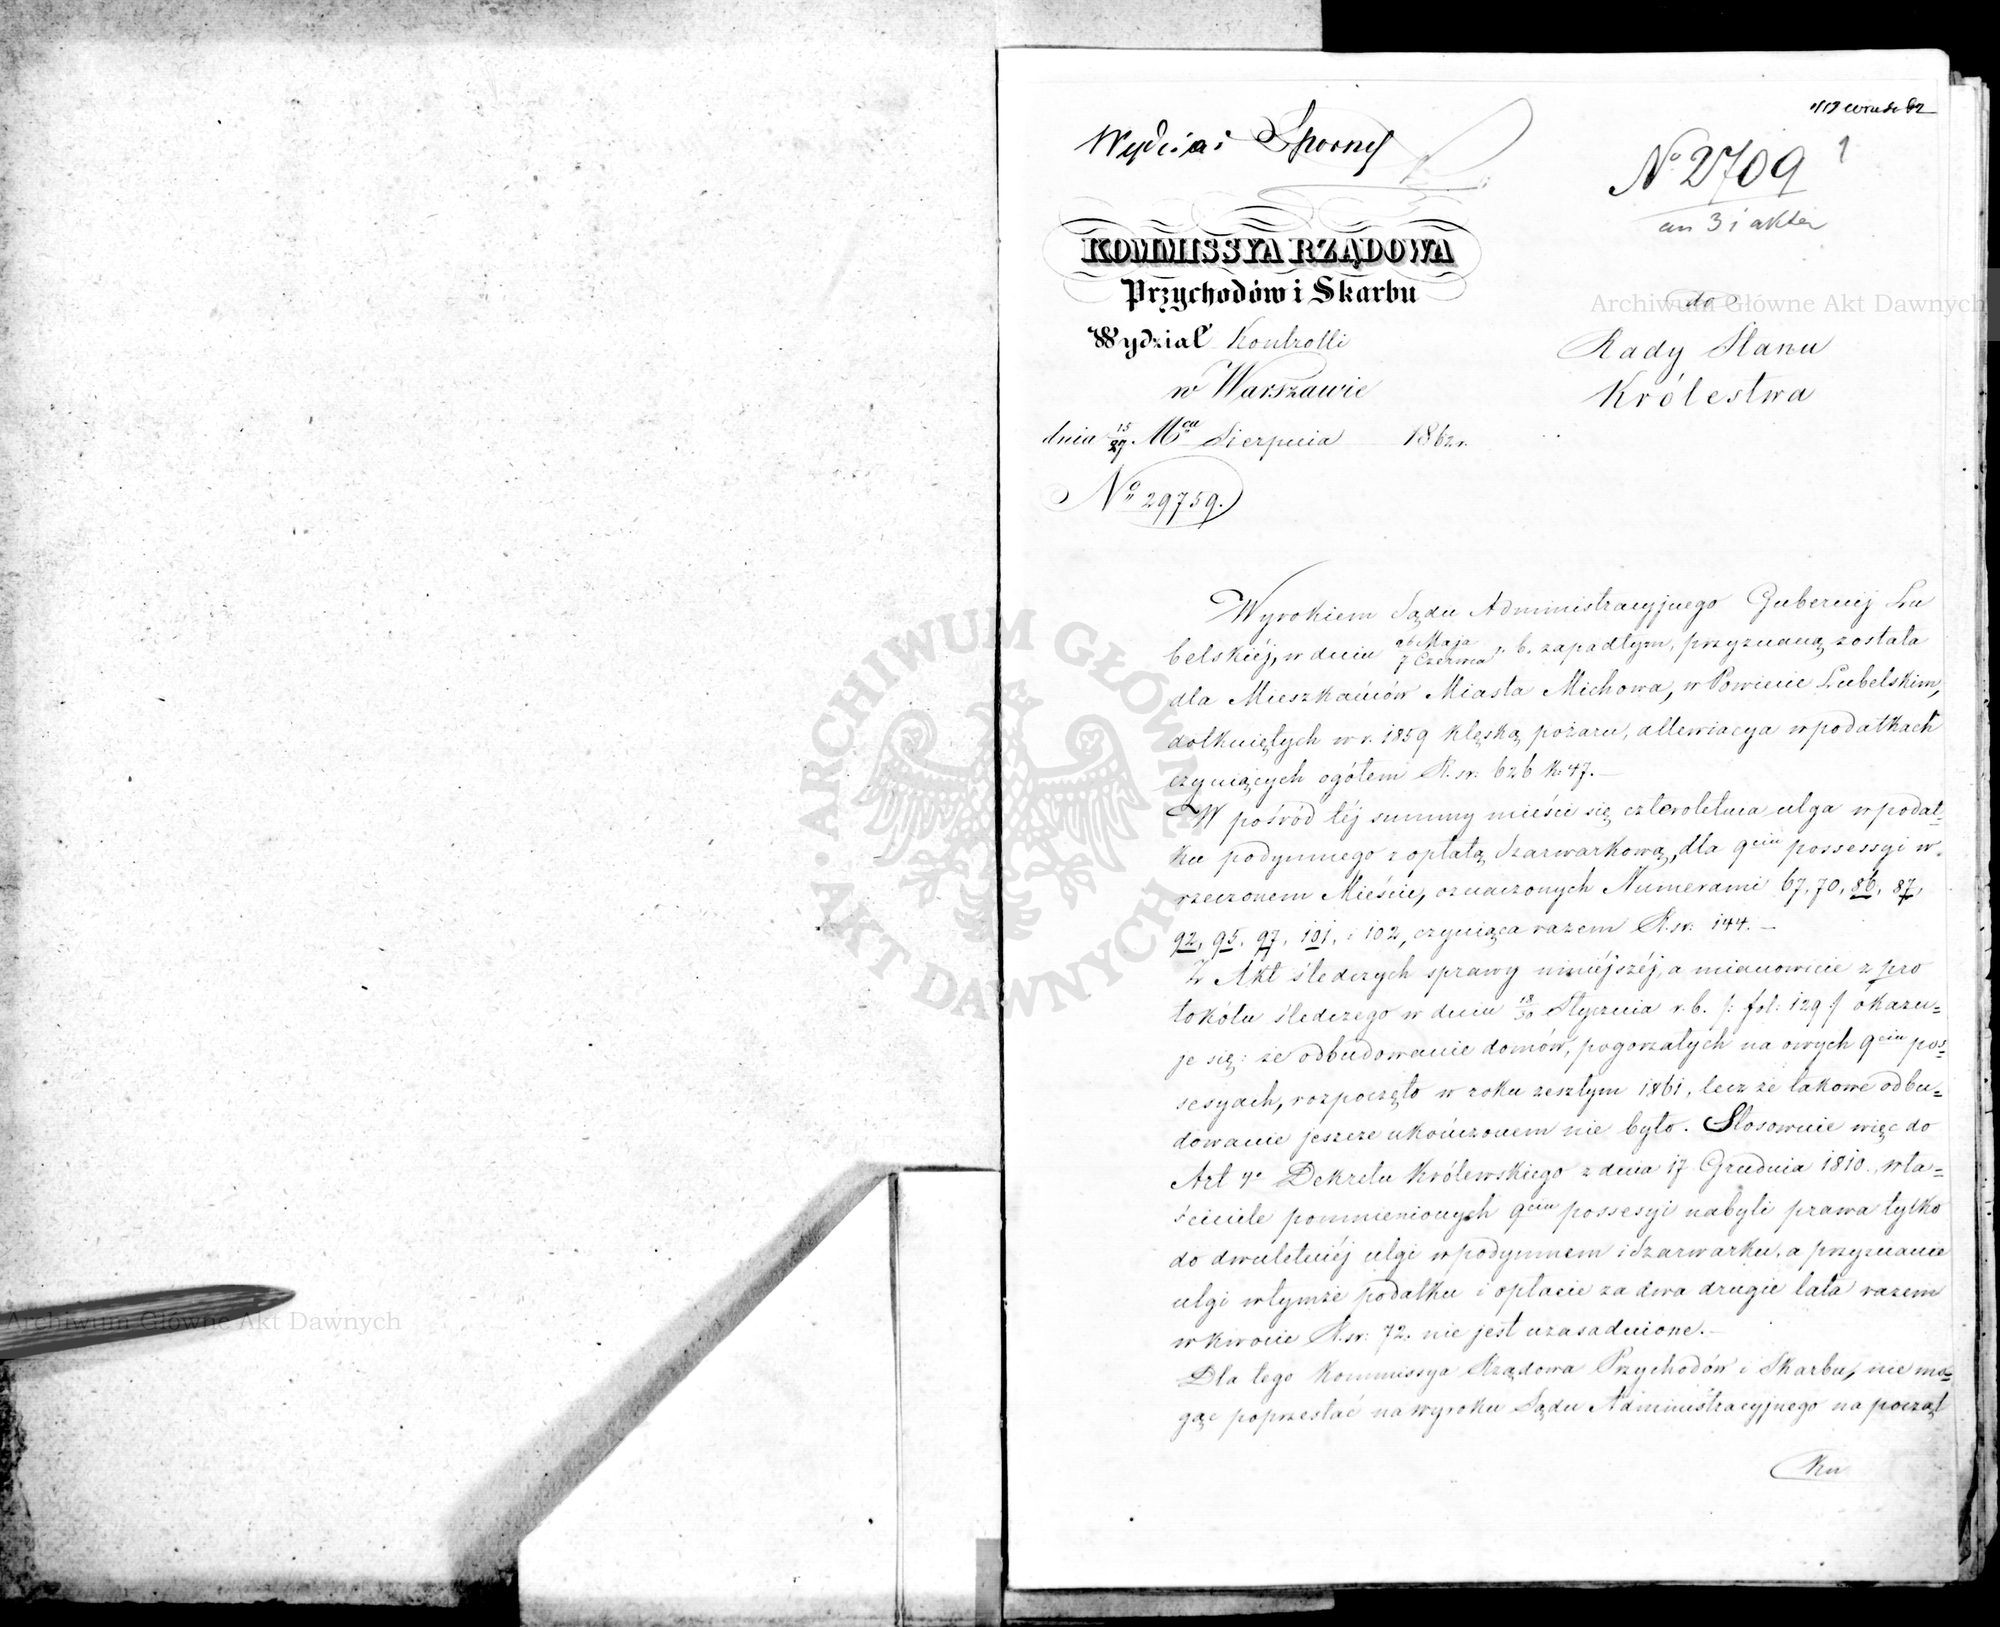 Wydział Sporny
N° 2709 1
an 3 i akta
KOMMISSYA RZĄDOWA
Przychodów i Skarbu
Wydział Kontrolli
w Warszawie
dnia 15/27 Mca Sierpnia 1862 r.
N° 29759.
do
Rady Stanu
Królestwa
Wyrokiem Sądu Administracyjnego Gubernij Lu
belskiéj, w dniu 26 Maja / 7 Czerwca r. b. zapadłym, przyznaną została
dla Mieszkańców Miasta Michowa, w Powiecie Lubelskim,
dotkniętych w r. 1859 klęską pożaru, allewiacya w podatkach
czyniących ogółem R. sr. 626 k. 47. —
W pośród téj summy mieści się czteroletnia ulga w podat=
ku podymnego z opłatą Szarwarkową, dla 9ciu possessyi w
rzeczonem Mieście, oznaczonych Numerami 67, 70, 86, 87,
92, 95, 97, 101, i 102, czyniąca razem R. sr. 144. —
Z Akt śledczych sprawy niniéjszéj, a mianowicie z pro
tokółu śledczego w dniu 18/30 Stycznia r. b. /: fol: 129 :/ okazu=
je się: że odbudowanie domów, pogorzałych na owych 9ciu pos=
sesyach, rozpoczęto w roku zeszłym 1861, lecz że takowe odbu=
dowanie jeszcze ukończonem nie było. Stosownie więc do
Art 4° Dekretu Królewskiego z dnia 17 Grudnia 1810. wła=
ściciele pomienionych 9ciu possesyi nabyli prawa tylko
do dwuletniéj ulgi w podymnem i Szarwarku, a przyznanie
ulgi w tymże podatku i opłacie za dwa drugie lata razem
w kwocie R. sr. 72. nie jest uzasadnione. —
Dla tego Kommissya Rządowa Przychodów i Skarbu, nie mo=
gąc poprzestać na wyroku Sądu Administracyjnego na począt
ku
Archiwum Główne Akt Dawnych
Archiwum Główne Akt Dawnych
ARCHIWUM GŁÓWNE · AKT DAWNYCH ·